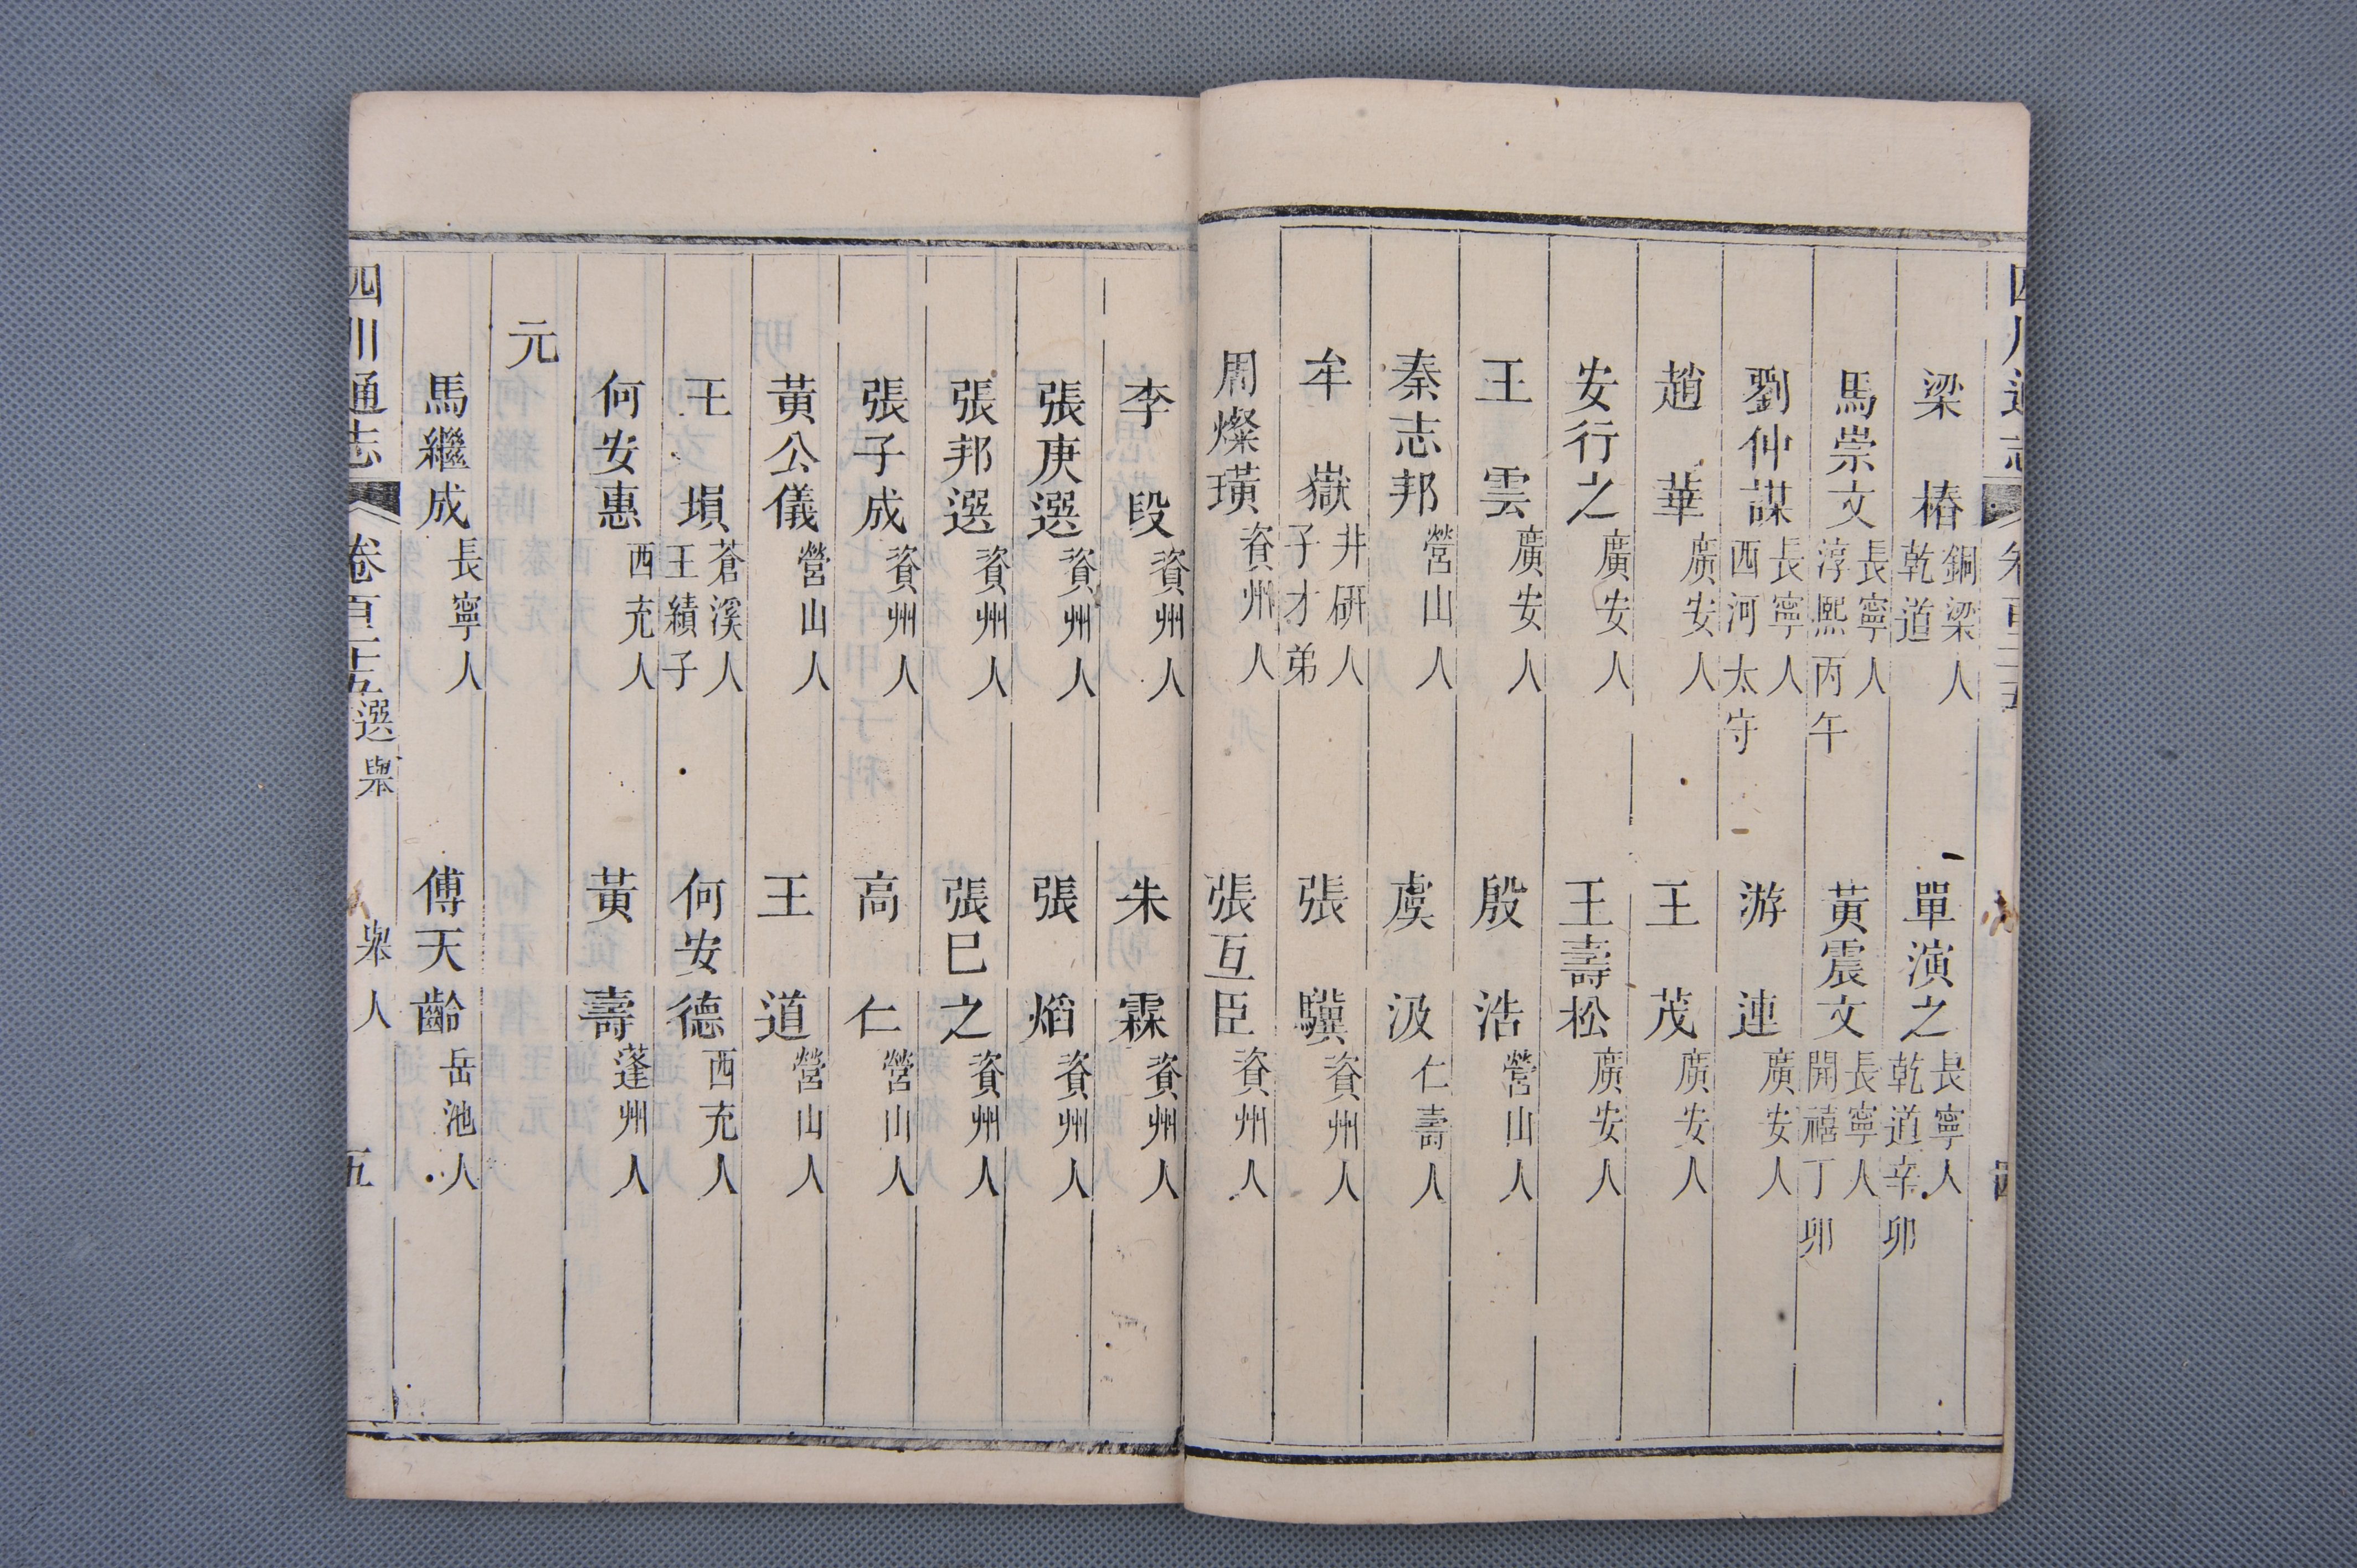 梁椿銅梁人乾道 單演之長寧人乾道辛卯
馬崇文長寧人淳熙丙午 黃震文長寧人開禧丁卯
劉仲謀長寧人西河太守 游連廣安人
趙華廣安人 王茂廣安人
安行之廣安人 王壽松廣安人
王雲廣安人 殷浩營山人
秦志邦營山人 虞汲仁壽人
牟嶽井研人子才弟 張驥資州人
周燦璜資州人 張互臣資州人
李段資州人 朱霖資州人
張庚選資州人 張熖資州人
張邦選資州人 張巳之資州人
張子成資州人 高仁營山人
黃公儀營山人 王道營山人
王塤蒼溪人王績子 何安德西充人
何安惠西充人 黃壽蓬州人
元
馬繼成長寧人 傅天齡岳池人
四川通志 卷百二十五選舉 舉人 五